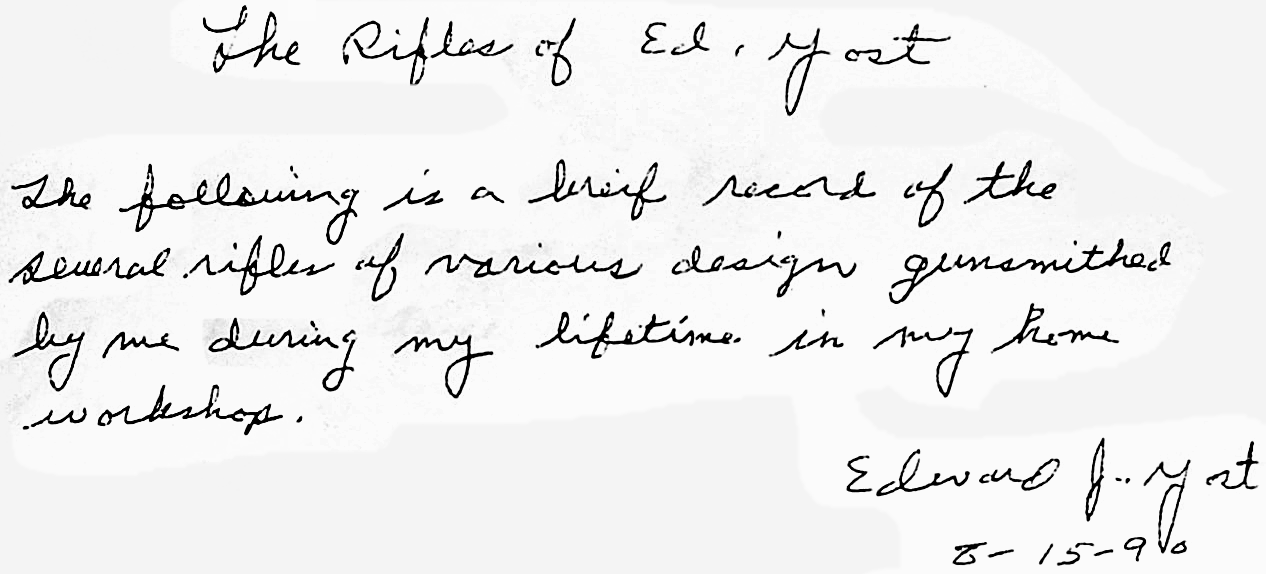 The Rifles of Ed. Yost
The following is a breif record of the
several rifles of various design gunsmithed
by me during my lifetime in my home
workshop.
Edward J. Yost
8-15-90